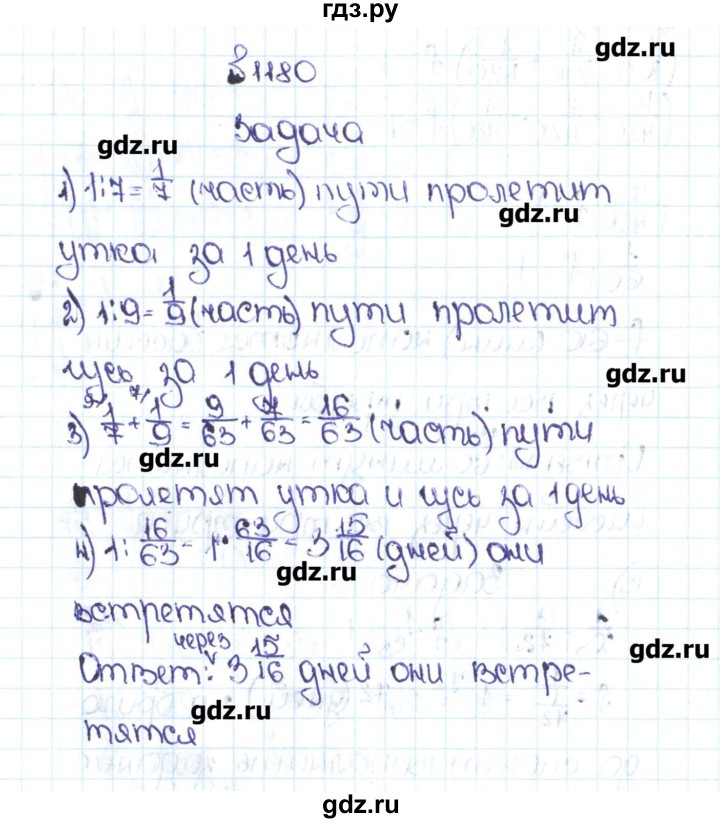 гдз.ру
gdz.ru
§ 1180
gdz.ru
Задача
1) 1:7 = 1/7 (часть) пути пролетит
gdz.ru
утка за 1 день
2) 1:9 = 1/9 (часть) пути пролетит
гусь за 1 день
gdz.ru
3) 9/ 1/7 + 7/ 1/9 = 9/63 + 7/63 = 16/63 (часть) пути
gdz.ru
пролетят утка и гусь за 1 день
4) 1: 16/63 = 1 · 63/16 = 3 15/16 (дней) они
gdz.ru
встретятся
через
Ответ: 3 15/16 дней они встре-
gdz.ru
gdz.ru
тятся
gdz.ru